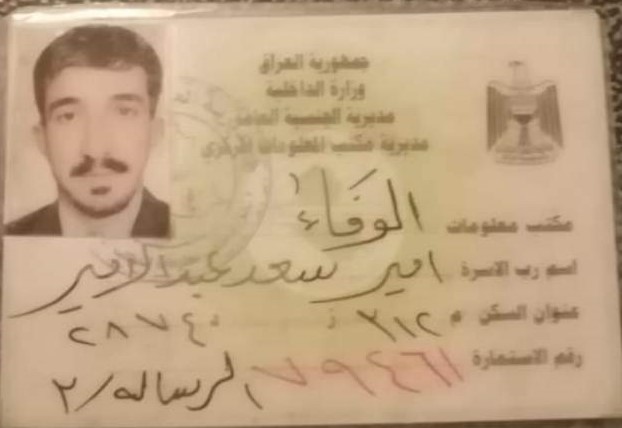 جمهورية العراق
وزارة الداخلية
مديرية الجنسية العامة
مديرية مكتب المعلومات المركزي
مكتب معلومات الوفاء
اسم رب الاسرة امير سعد عبد الامير
عنوان السكن م ٣١٢ ز د ٢٨٧٤
رقم الاستمارة ٧٩٤٦١ الرساله/٢